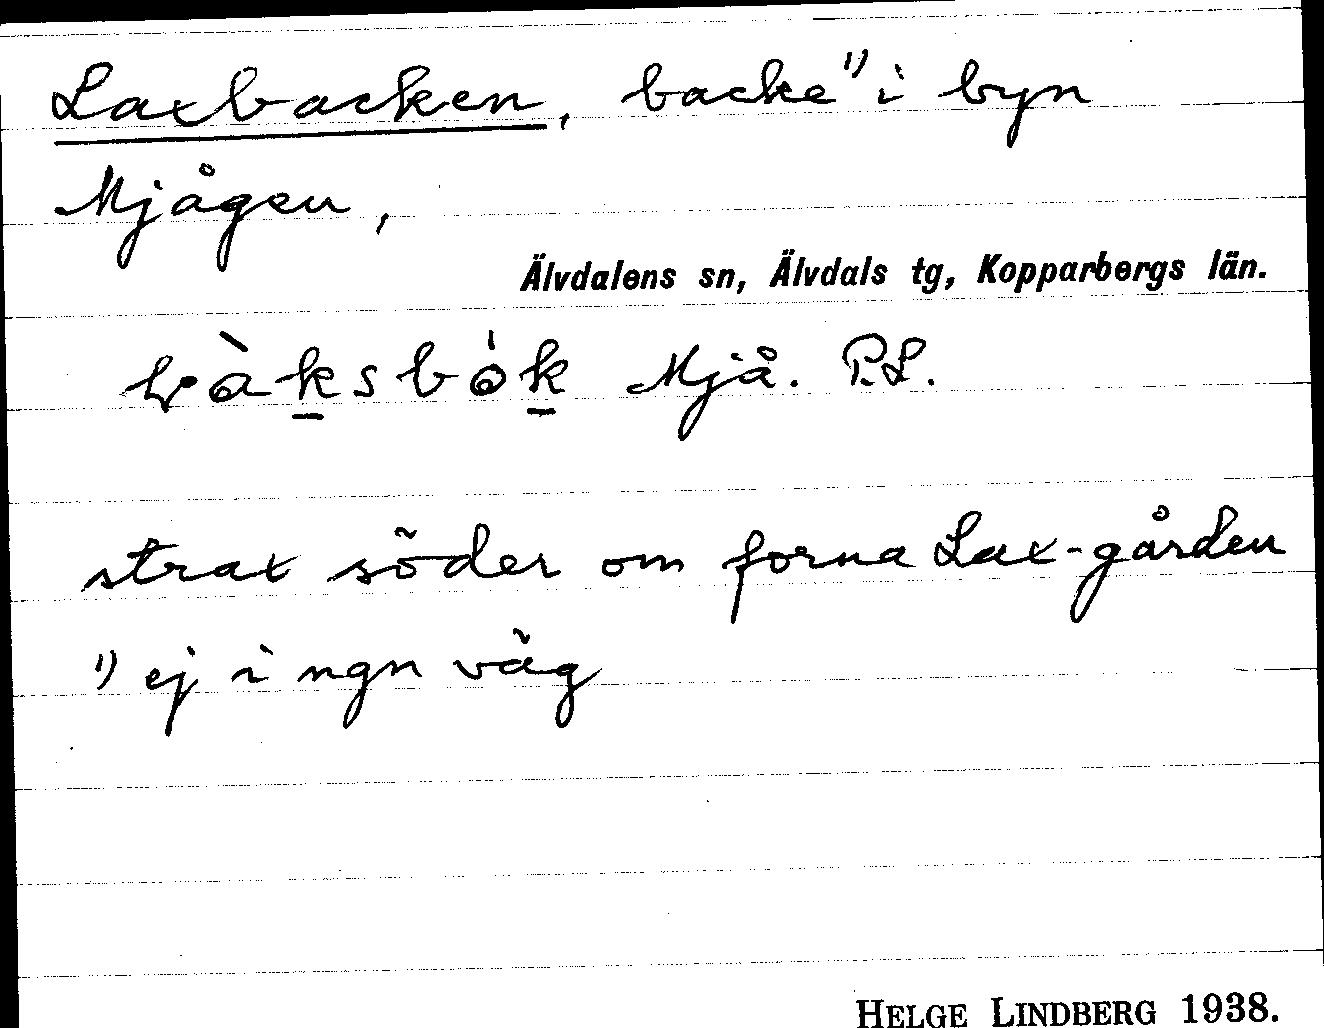 Laxbacken, backe 1) i byn
Mjågen,
Älvdalens sn, Älvdals tg, Kopparbergs län.
Mjå. P.L.
strax söder om forna Lax-gården
1) ej i ngn väg
HELGE LINDBERG 1938.